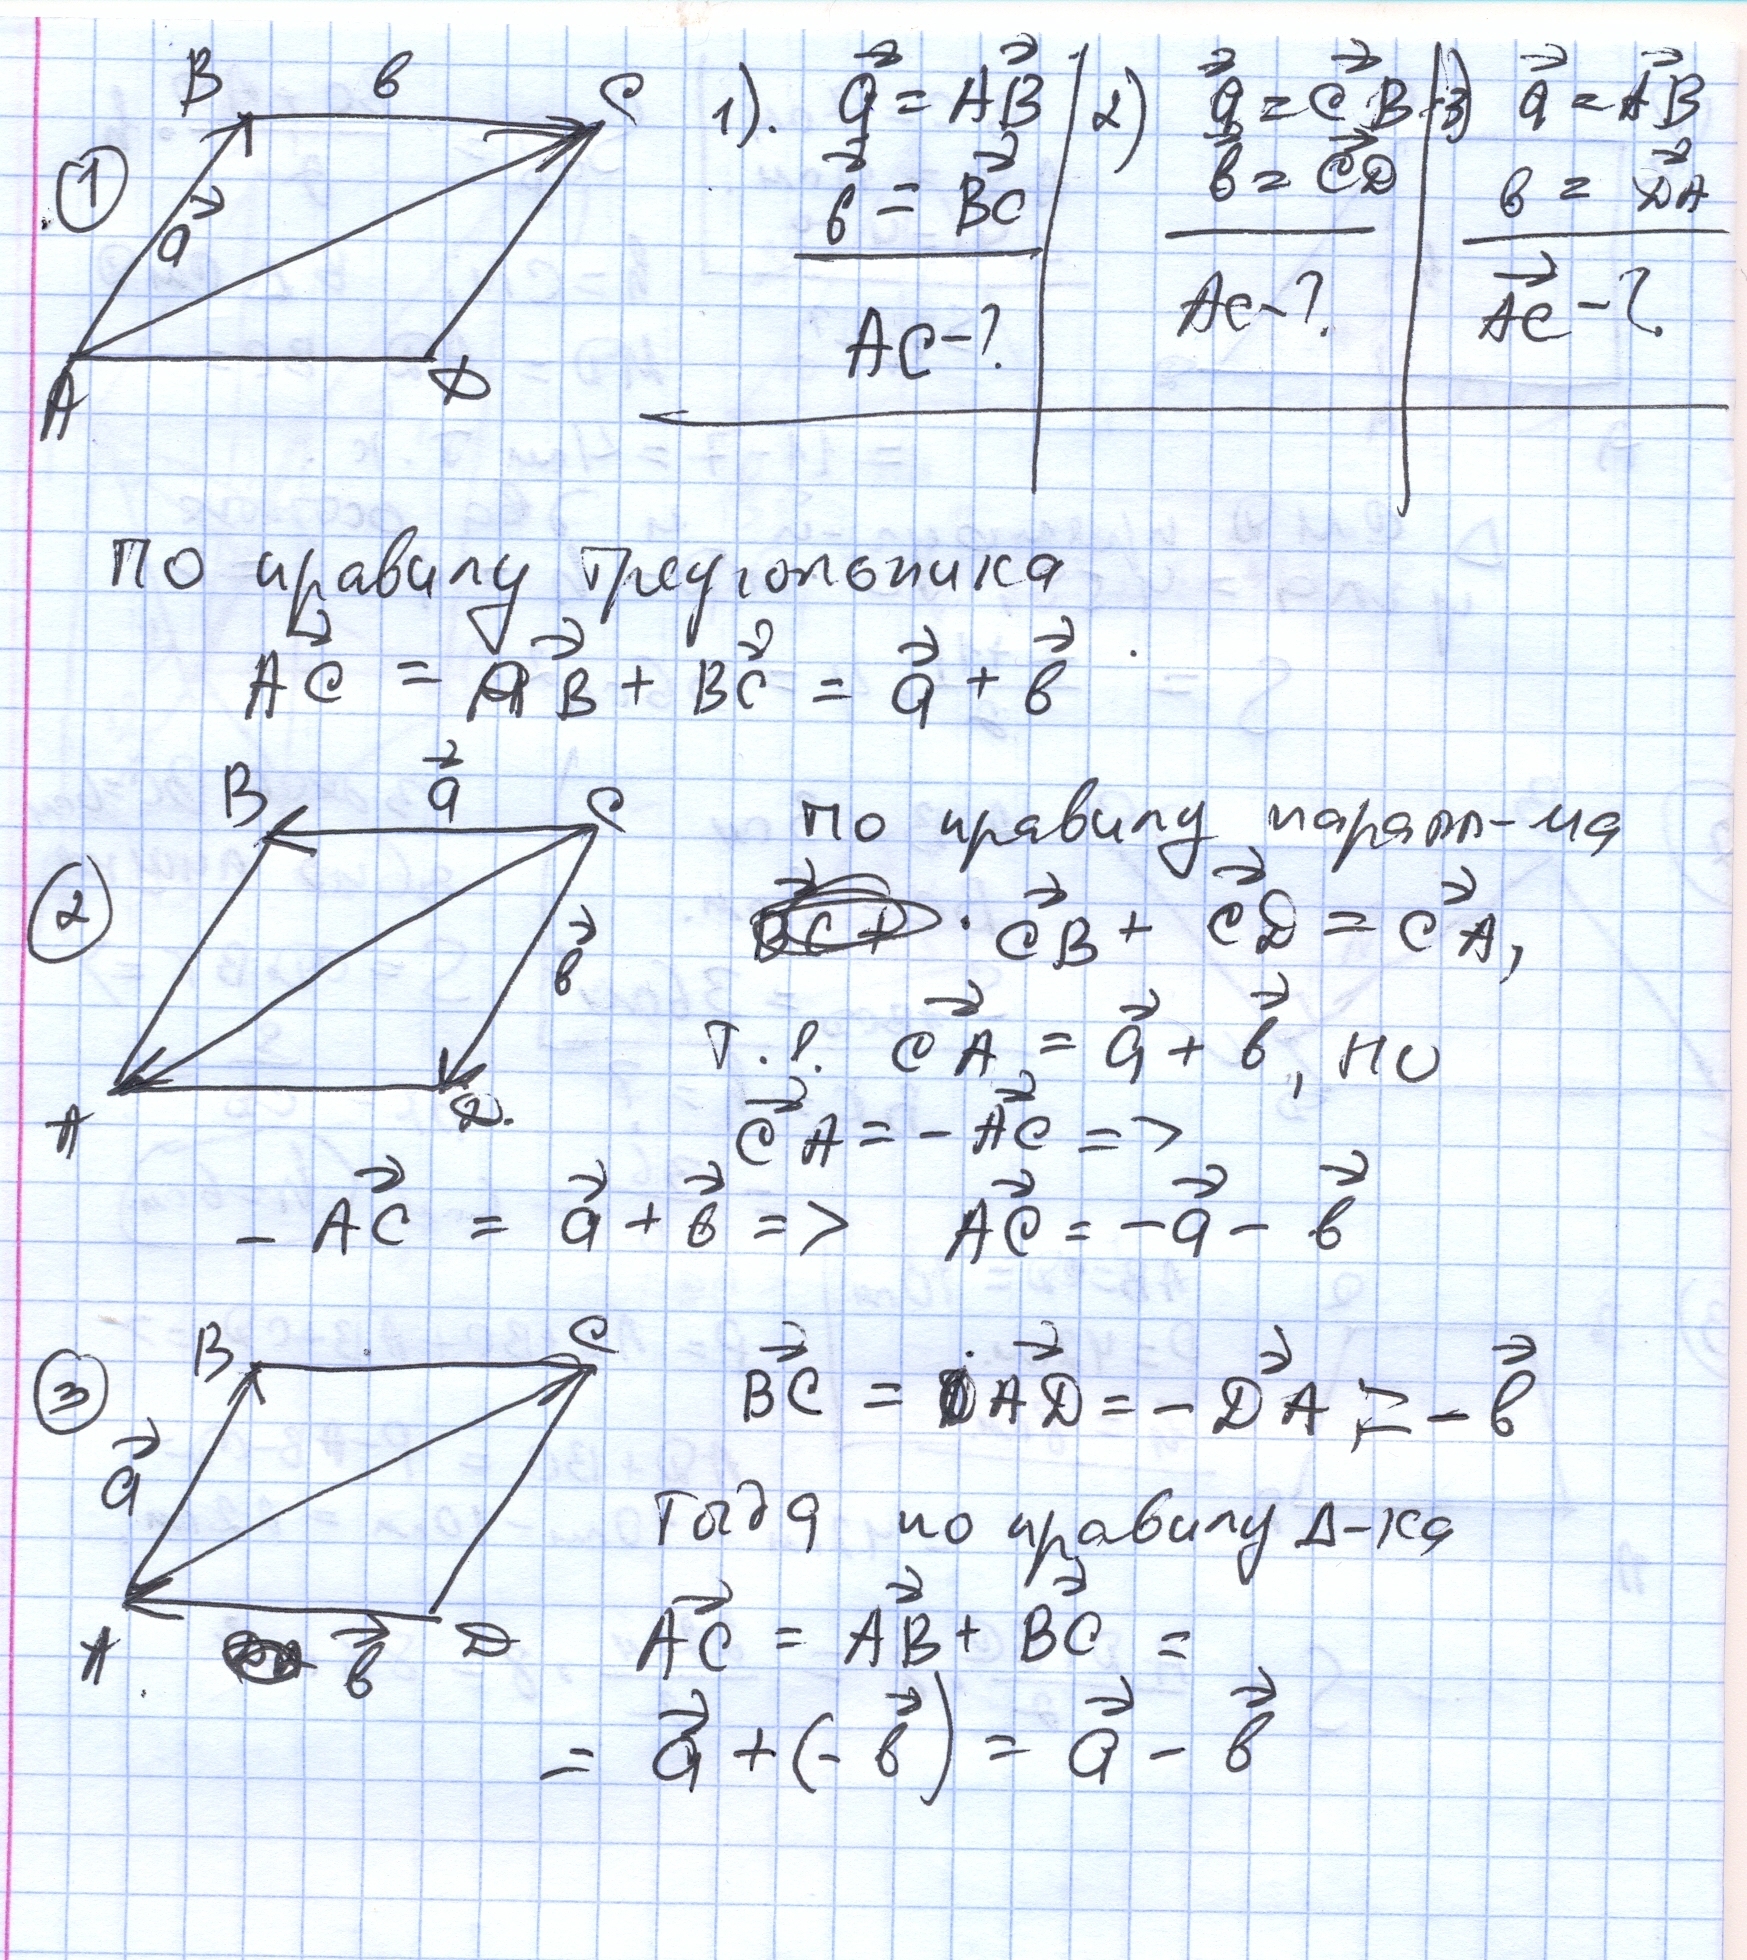 B в C
1
a⃗
A D
1). a⃗ = AB⃗
в⃗ = BC⃗
AC - ?
2) a⃗ = CB⃗
в⃗ = CD⃗
AC - ?
3) a⃗ = AB⃗
в = DA⃗
AC⃗ - ?
По правилу треугольника
AC⃗ = AB⃗ + BC⃗ = a⃗ + в⃗
B a⃗ C
2
в⃗
A D.
По правилу паралл-ма
CB⃗ + CD⃗ = CA⃗,
т.е. CA⃗ = a⃗ + в⃗, но
CA⃗ = - AC⃗ =>
- AC⃗ = a⃗ + в⃗ => AC⃗ = -a⃗ - в⃗
B C
3
a⃗
A в⃗ D
BC⃗ = AD⃗ = - DA⃗ = - в⃗
Тогда по правилу Δ-ка
AC⃗ = AB⃗ + BC⃗ =
= a⃗ + (- в⃗) = a⃗ - в⃗